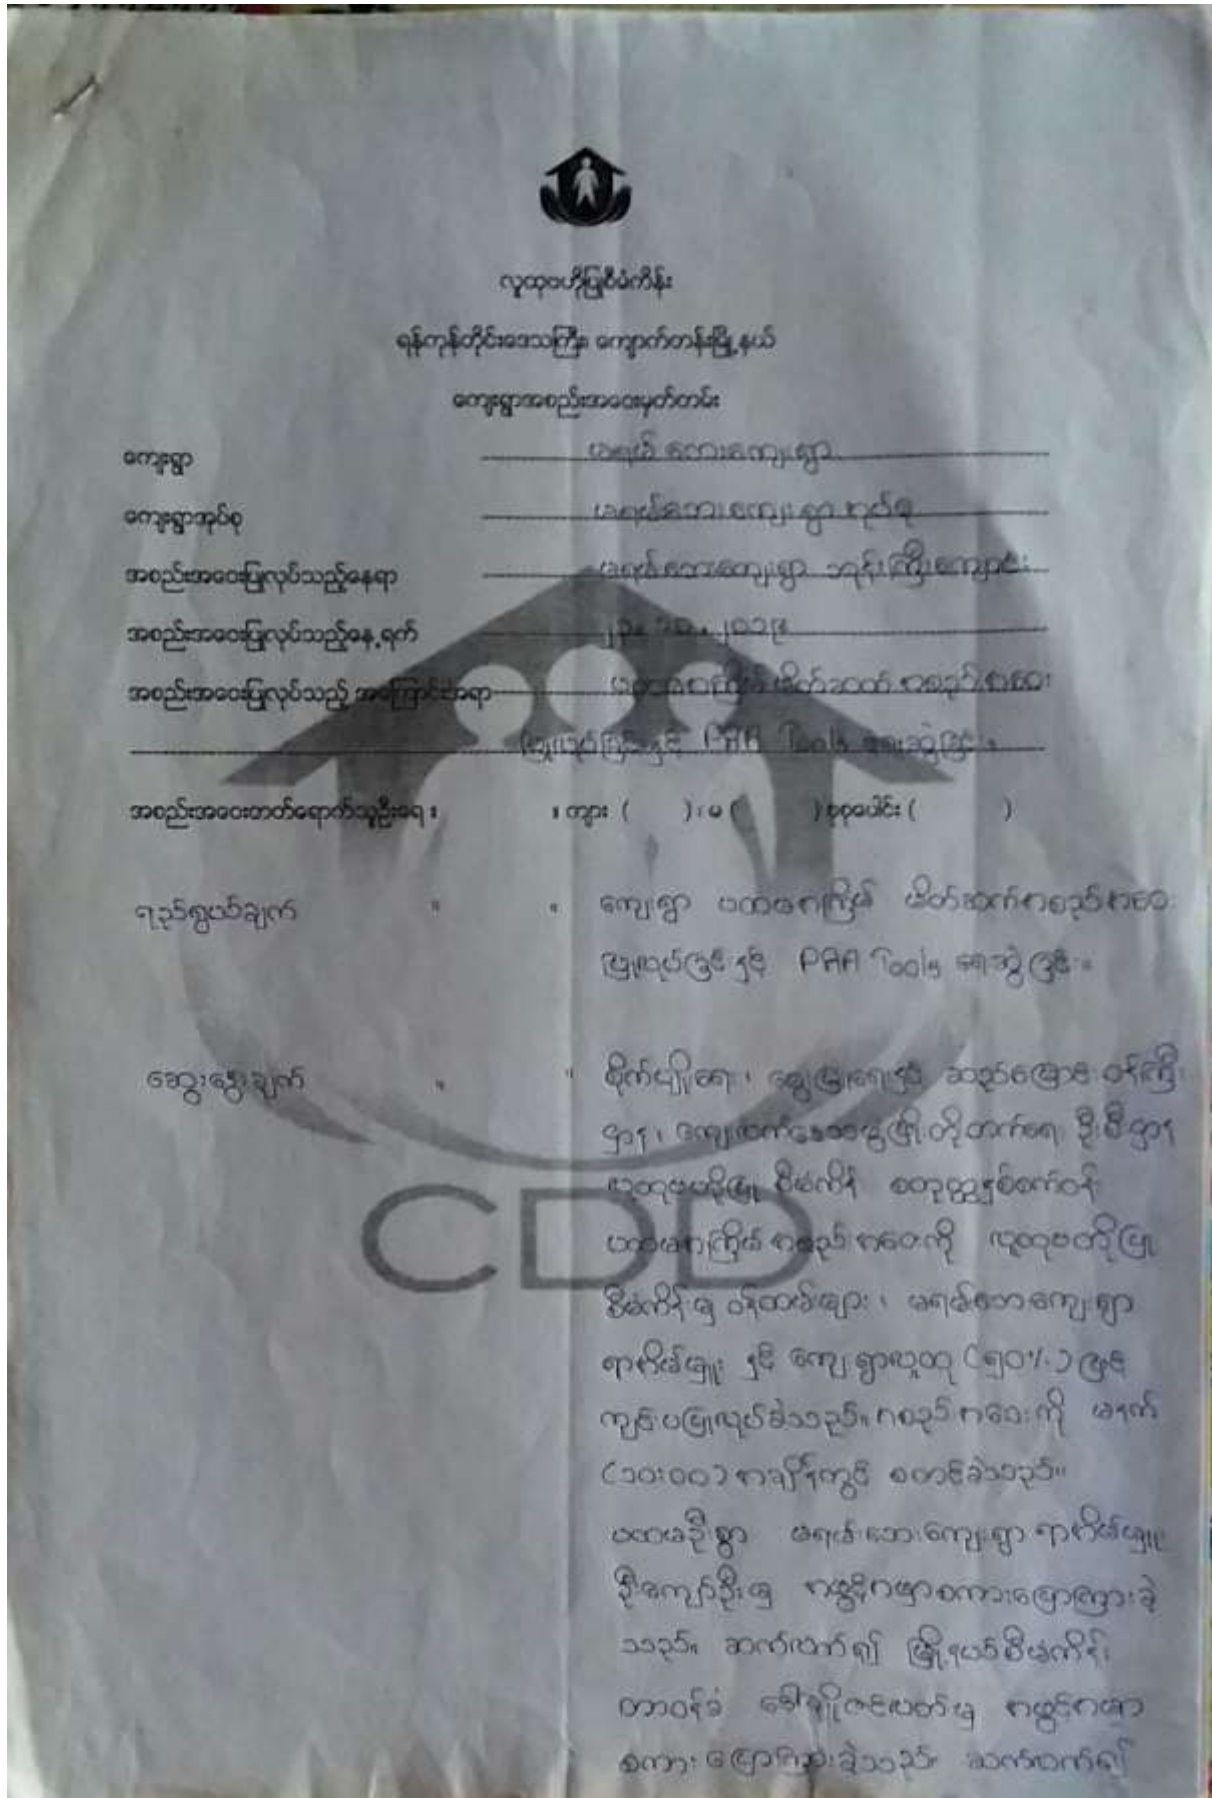 လူထုဗဟိုပြုစီမံကိန်း
ရန်ကုန်တိုင်းဒေသကြီး၊ ကျောက်တန်းမြို့နယ်
ကျေးရွာအစည်းအဝေးမှတ်တမ်း
ကျေးရွာ မရမ်းဘေးကျေးရွာ
ကျေးရွာအုပ်စု မရမ်းဘေးကျေးရွာအုပ်စု
အစည်းအဝေးပြုလုပ်သည့်နေရာ မရမ်းဘေးကျေးရွာ ဘုန်းကြီးကျောင်း
အစည်းအဝေးပြုလုပ်သည့်နေ့ရက် ၂၃.၁၀.၂၀၁၉
အစည်းအဝေးပြုလုပ်သည့် အကြောင်းအရာ ပထမအကြိမ် မိတ်ဆက် အစည်းအဝေး
ပြုလုပ်ခြင်းနှင့် PRA Tools ရေးဆွဲခြင်း။
အစည်းအဝေးတက်ရောက်သူဦးရေ ။ ။ ကျား ( ) ၊ မ ( ) စုစုပေါင်း ( )
ရည်ရွယ်ချက် ။ ။ ကျေးရွာ ပထမအကြိမ် မိတ်ဆက်အစည်းအဝေး
ပြုလုပ်ခြင်းနှင့် PRA Tools ရေးဆွဲခြင်း။
ဆွေးနွေးချက် ။ ။ စိုက်ပျိုးရေး၊ မွေးမြူရေးနှင့် ဆည်မြောင်းဝန်ကြီး
ဌာန၊ ကျေးလက်ဒေသဖွံ့ဖြိုးတိုးတက်ရေး ဦးစီးဌာန
လူထုဗဟိုပြု စီမံကိန်း စတုတ္ထနှစ်စက်ဝန်း
ပထမအကြိမ် အစည်းအဝေးကို လူထုဗဟိုပြု
စီမံကိန်းမှ ဝန်ထမ်းများ၊ မရမ်းဘေးကျေးရွာ
ရာအိမ်မှူး နှင့် ကျေးရွာလူထု (၅၀%) ဖြင့်
ကျင်းပပြုလုပ်ခဲ့သည်။ အစည်းအဝေးကို မနက်
(၁၀:၀၀) အချိန်တွင် စတင်ခဲ့သည်။
ပထမဦးစွာ မရမ်းဘေးကျေးရွာ ရာအိမ်မှူး
ဦးကျော်ဦးမှ အဖွင့်အမှာစကားပြောကြားခဲ့
သည်။ ဆက်လက်၍ မြို့နယ်စီမံကိန်း
တာဝန်ခံ ဒေါ်ချိုဇင်လတ်မှ အဖွင့်အမှာ
စကား ပြောကြားခဲ့သည်။ ဆက်လက်၍
CDD